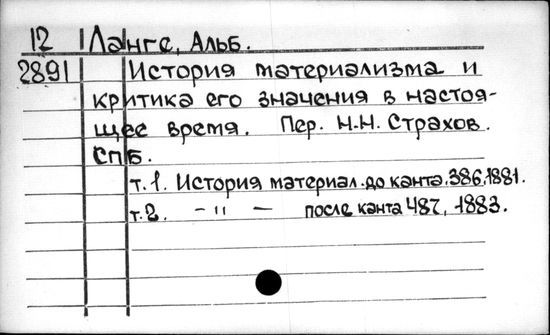 12 Ланге, Альб.
2891 История материализма и
критика его значения в настоя-
щее время. Пер. Н.Н. Страхов.
СПБ.
т.1. История материал. до канта. 386, 1881.
т.2. – " – после канта 487, 1883.